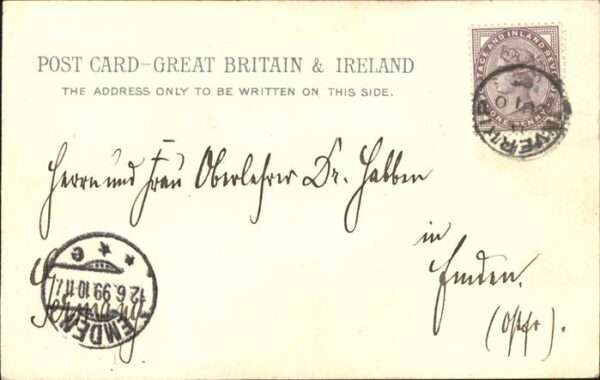 POST CARD—GREAT BRITAIN & IRELAND
THE ADDRESS ONLY TO BE WRITTEN ON THIS SIDE.
POSTAGE AND INLAND REVENUE
ONE PENNY
Herrn und Frau Oberlehrer Dr. Habben
in
Emden.
(Ostfr).
EMDEN
12.6.99.10 11
* * e